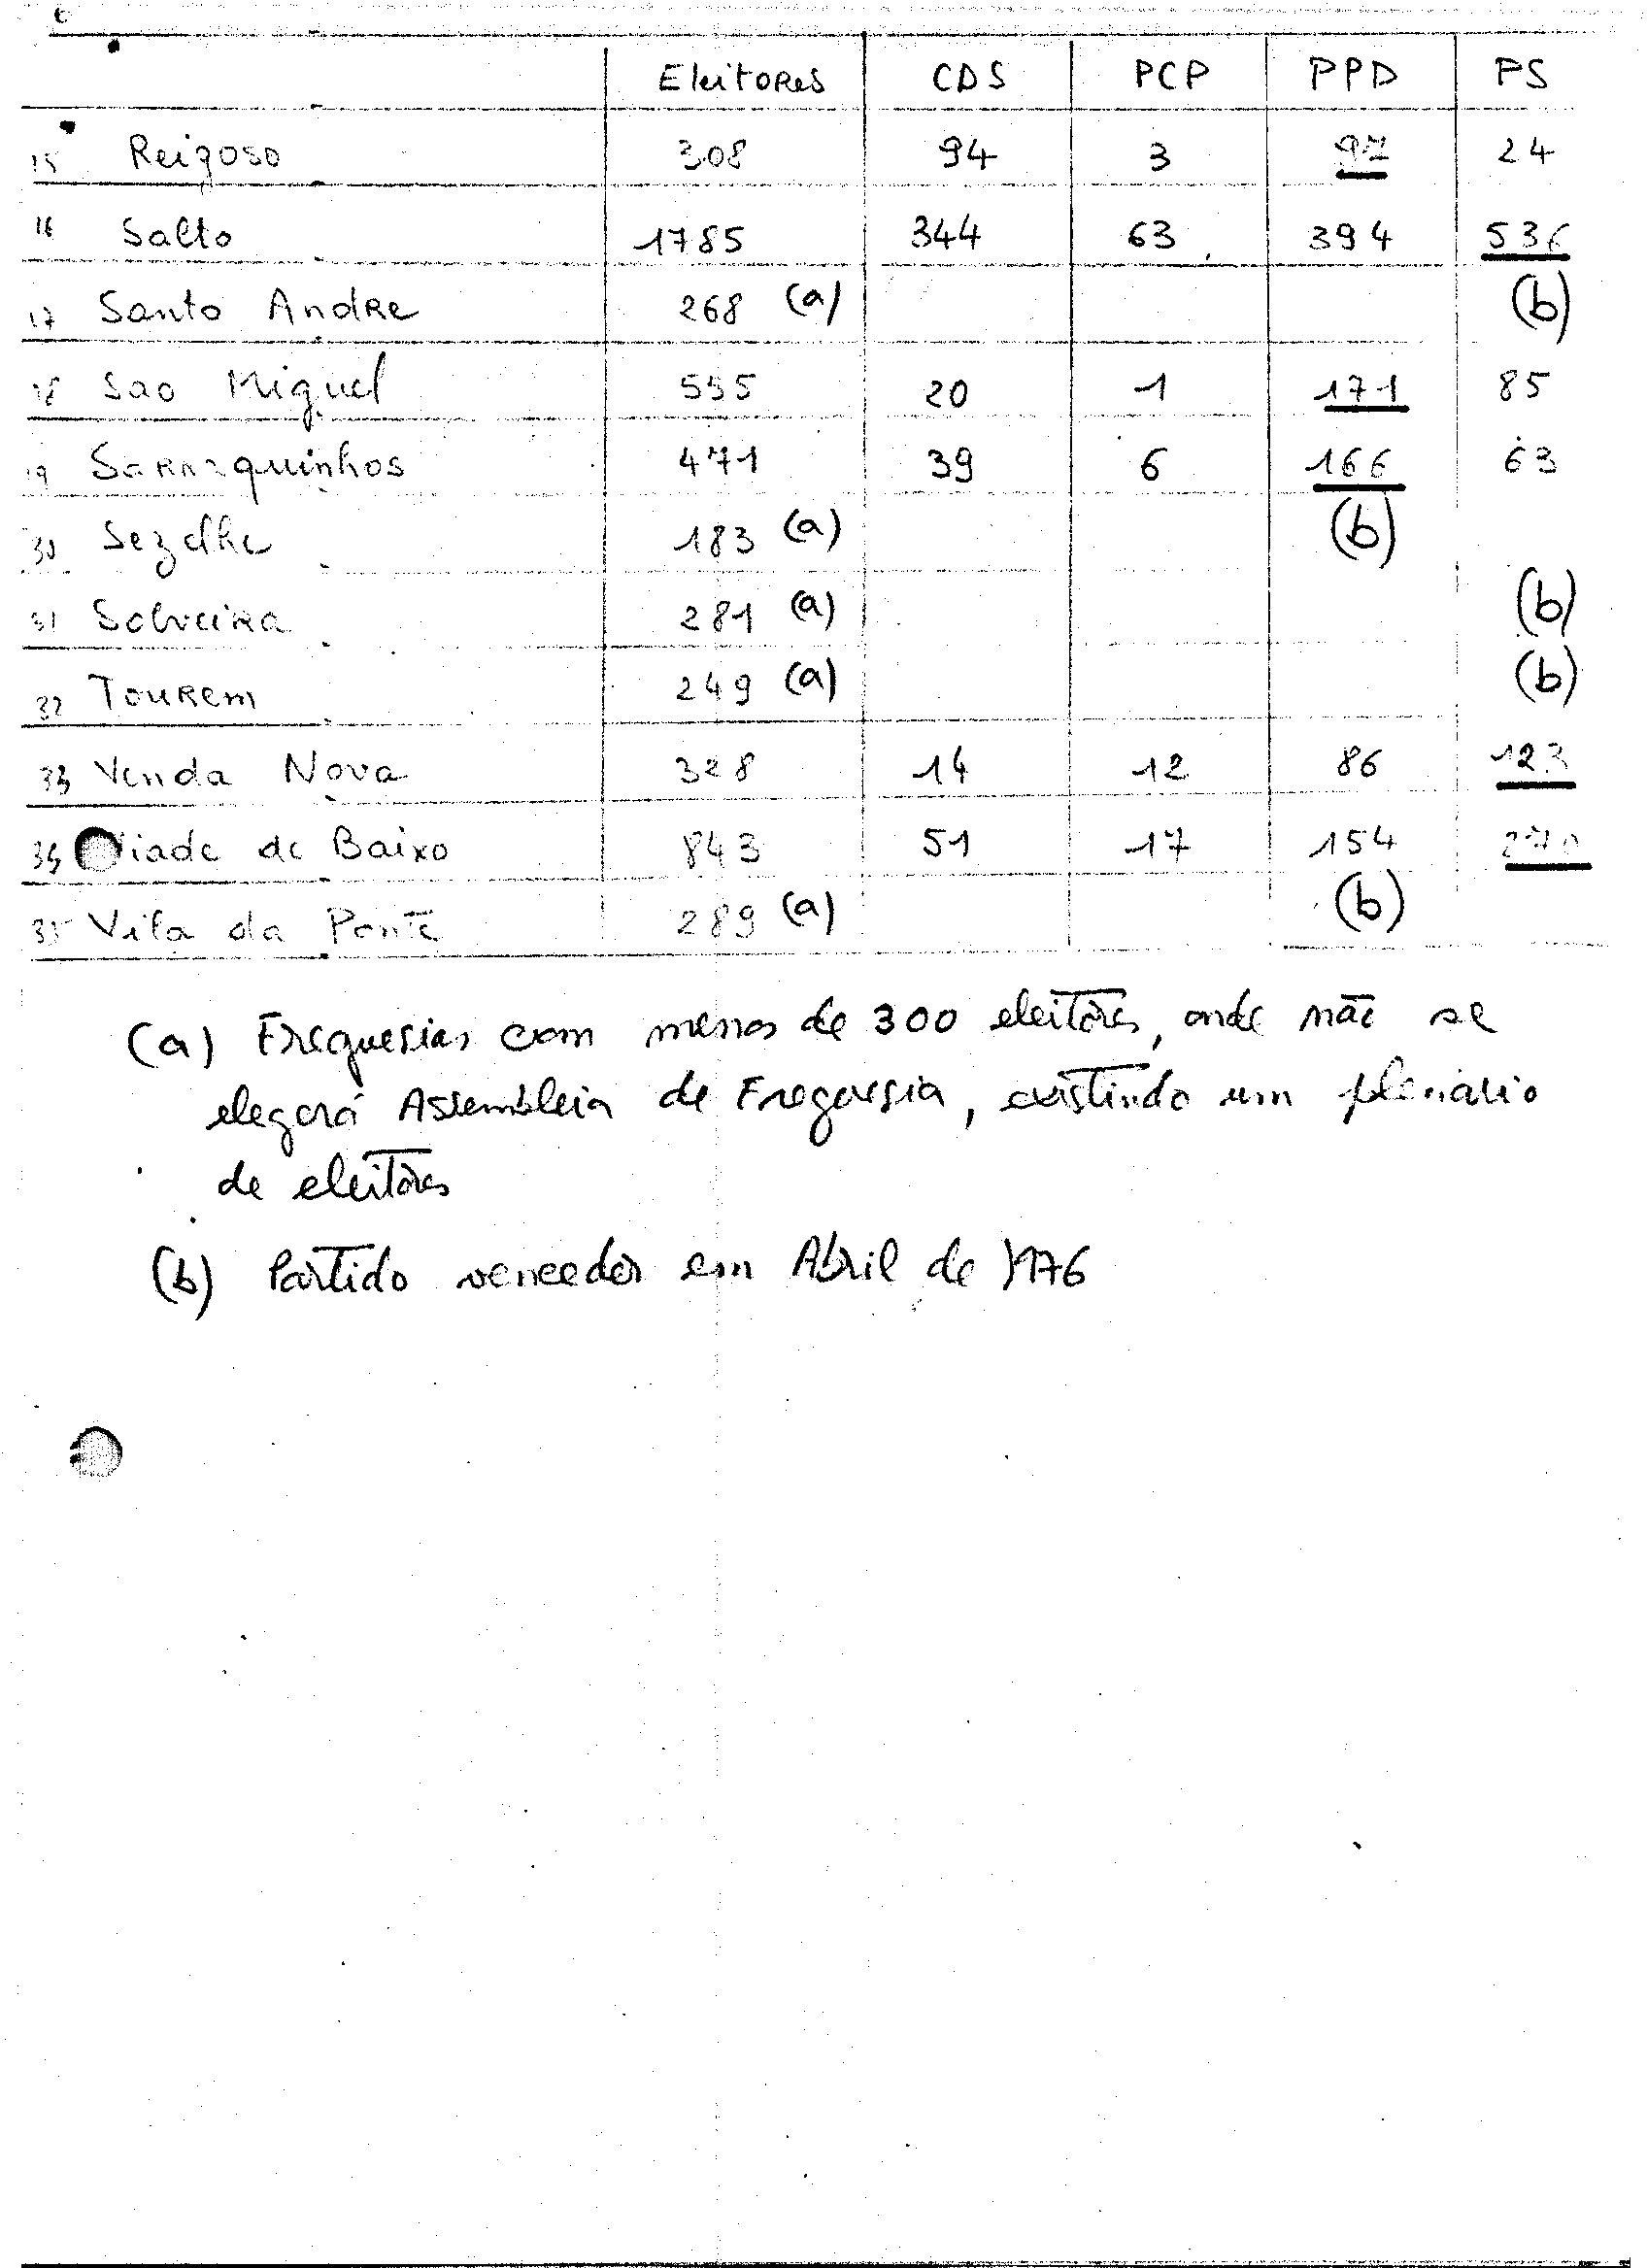 Eleitores CDS PCP PPD PS
15 Reigoso 308 94 3 97 24
16 Salto 1785 344 63 394 536
17 Santo Andre 268 (a) (b)
Sao Miguel 555 20 1 171 85
19 Sarraquinhos 471 39 6 166 63
30 Sezelhe 183 (a) (b)
31 Solveira 281 (a) (b)
32 Tourem 249 (a) (b)
33 Venda Nova 328 14 12 86 123
34 iade de Baixo 843 51 17 154
35 Vila da Ponte 289 (a) (b)
(a) Freguesias com menos de 300 eleitores, onde não se
elegerá Assembleia de Freguesia, existindo um plenário
de eleitores
(b) Partido vencedor em Abril de 1976